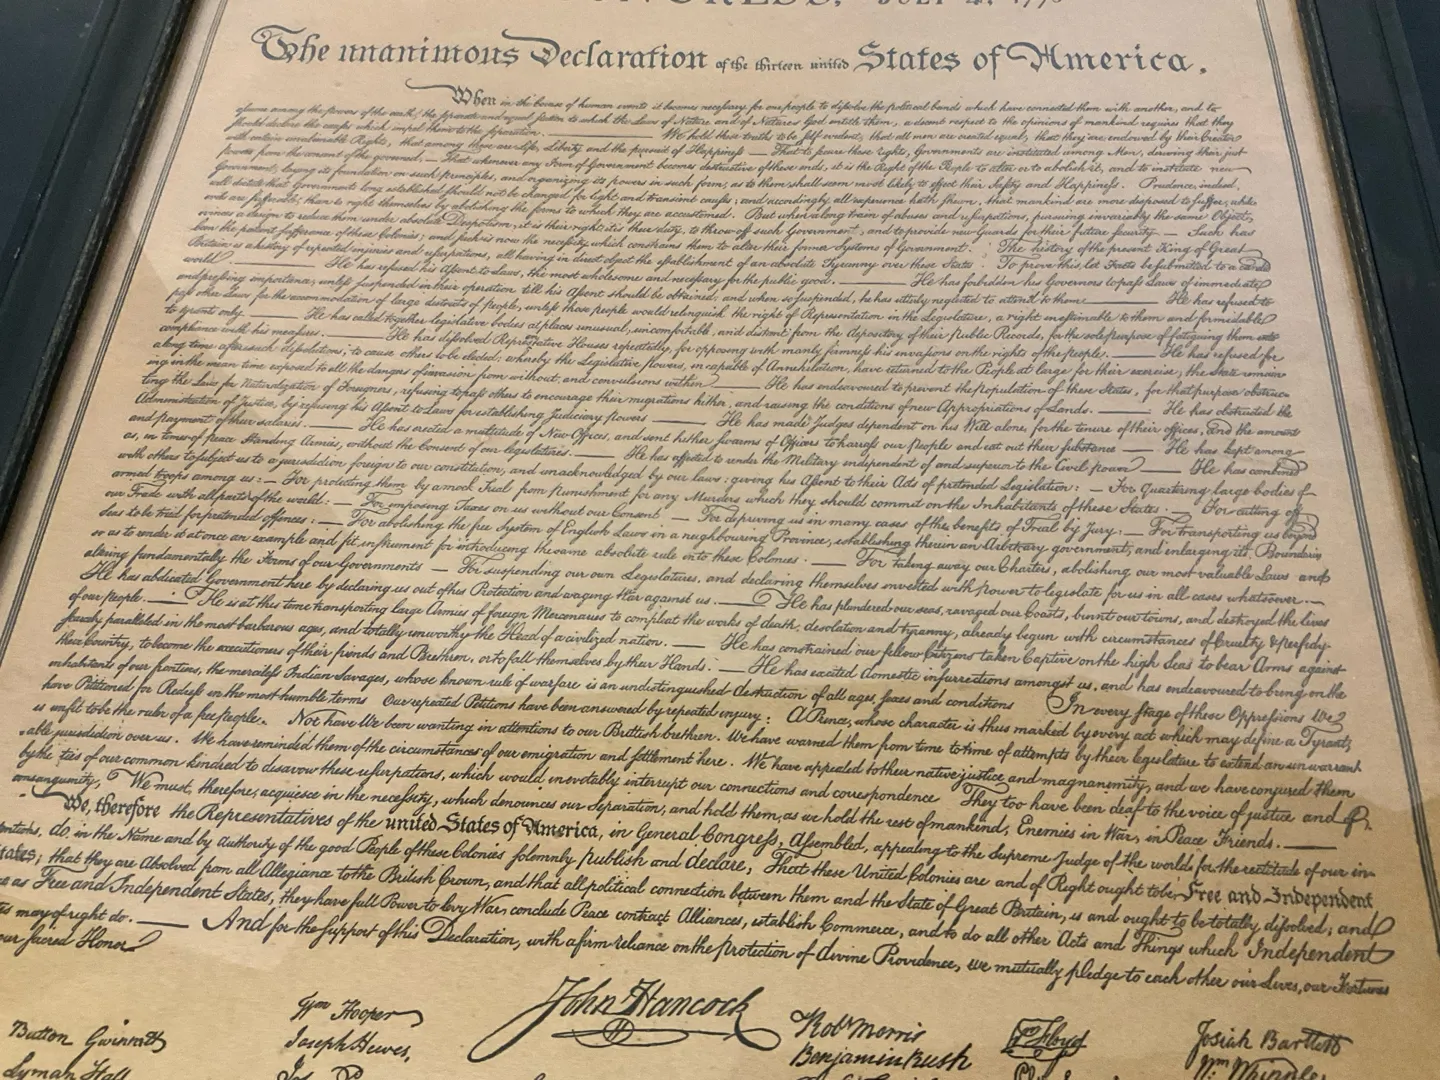 CONGRESS, JULY 4, 1776
The unanimous Declaration of the thirteen united States of America.
When in the Course of human events it becomes necessary for one people to dissolve the political bands which have connected them with another, and to
assume among the powers of the earth, the separate and equal station to which the Laws of Nature and of Nature's God entitle them, a decent respect to the opinions of mankind requires that they
should declare the causes which impel them to the separation. — We hold these truths to be self evident, that all men are created equal, that they are endowed by their Creator
with certain unalienable Rights, that among these are Life, Liberty and the pursuit of Happiness — That to secure these rights, Governments are instituted among Men, deriving their just
powers from the consent of the governed, — That whenever any Form of Government becomes destructive of these ends, it is the Right of the People to alter or to abolish it, and to institute new
Government, laying its foundation on such principles, and organizing its powers in such form, as to them shall seem most likely to effect their Safety and Happiness. Prudence, indeed,
will dictate that Governments long established should not be changed for light and transient causes; and accordingly, all experience hath shewn, that mankind are more disposed to suffer, while
evils are sufferable, than to right themselves by abolishing the forms to which they are accustomed. But when a long train of abuses and usurpations, pursuing invariably the same Object,
evinces a design to reduce them under absolute Despotism, it is their right, it is their duty, to throw off such Government, and to provide new Guards for their future security — Such has
been the patient sufferance of these Colonies; and such is now the necessity which constrains them to alter their former Systems of Government. The history of the present King of Great
Britain is a history of repeated injuries and usurpations, all having in direct object the establishment of an absolute Tyranny over these States. To prove this, let Facts be submitted to a candid
world. — He has refused his Assent to Laws, the most wholesome and necessary for the public good. — He has forbidden his Governors to pass Laws of immediate
and pressing importance, unless suspended in their operation till his Assent should be obtained; and when so suspended, he has utterly neglected to attend to them — He has refused to
pass other Laws for the accommodation of large districts of people, unless those people would relinquish the right of Representation in the Legislature, a right inestimable to them and formidable
to tyrants only. — He has called together legislative bodies at places unusual, uncomfortable, and distant from the depository of their Public Records, for the sole purpose of fatiguing them into
compliance with his measures. — He has dissolved Representative Houses repeatedly, for opposing with manly firmness his invasions on the rights of the people. — He has refused for
a long time after such dissolutions, to cause others to be elected; whereby the Legislative powers, in capable of Annihilation, have returned to the People at large for their exercise; the State remain
ing in the mean time exposed to all the dangers of invasion from without, and convulsions within. — He has endeavoured to prevent the Population of these States; for that purpose obstruc-
ting the Laws for Naturalization of Foreigners, refusing to pass others to encourage their migrations hither, and raising the conditions of new Appropriations of Lands. — He has obstructed the
Administration of Justice, by refusing his Assent to Laws for establishing Judiciary powers — He has made Judges dependent on his Will alone, for the tenure of their offices, and the amount
and payment of their salaries. — He has erected a multitude of New Offices, and sent hither swarms of Officers to harrass our People and eat out their substance — He has kept among
us, in times of peace Standing Armies, without the Consent of our legislatures. — He has affected to render the Military independent of and superior to the Civil power — He has combined
with others to subject us to a jurisdiction foreign to our constitution, and unacknowledged by our laws; giving his Assent to their Acts of pretended Legislation: — For Quartering large bodies of
armed troops among us: — For protecting them by a mock Trial from Punishment for any Murders which they should commit on the Inhabitants of these States: — For cutting off
our Trade with all parts of the world: — For imposing Taxes on us without our Consent — For depriving us in many cases of the benefits of Trial by Jury: — For transporting us beyond
Seas to be tried for pretended offences: — For abolishing the free System of English Laws in a neighbouring Province, establishing therein an Arbitrary government, and enlarging it's Boundaries
so as to render it at once an example and fit instrument for introducing the same absolute rule into these Colonies. — For taking away our Charters, abolishing our most valuable Laws and
altering fundamentally the Forms of our Governments — For suspending our own Legislatures, and declaring themselves invested with power to legislate for us in all cases whatsoever. —
He has abdicated Government here by declaring us out of his Protection and waging War against us. — He has plundered our seas, ravaged our Coasts, burnt our towns, and destroyed the lives
of our people. — He is at this time transporting large Armies of foreign Mercenaries to compleat the works of death, desolation and tyranny, already begun with circumstances of Cruelty & perfidy
scarcely paralleled in the most barbarous ages, and totally unworthy the Head of a civilized nation. — He has constrained our fellow Citizens taken Captive on the high Seas to bear Arms against
their Country, to become the executioners of their friends and Brethren, or to fall themselves by their Hands: — He has excited domestic insurrections amongst us, and has endeavoured to bring on the
inhabitants of our frontiers, the merciless Indian Savages, whose known rule of warfare is an undistinguished destruction of all ages, sexes and conditions In every stage of these Oppressions We
have Petitioned for Redress in the most humble terms Our repeated Petitions have been answered by repeated injury: A Prince, whose character is thus marked by every act which may define a Tyrant,
is unfit to be the ruler of a free people. Nor have We been wanting in attentions to our Brittish brethren. We have warned them from time to time of attempts by their legislature to extend an unwarrant
able jurisdiction over us. We have reminded them of the circumstances of our emigration and settlement here. We have appealed to their native justice and magnanimity, and we have conjured them
by the ties of our common kindred to disavow these usurpations, which would inevitably interrupt our connections and correspondence They too have been deaf to the voice of justice and of
consanguinity, We must, therefore, acquiesce in the necessity, which denounces our Separation, and hold them, as we hold the rest of mankind, Enemies in War, in Peace Friends. —
We, therefore the Representatives of the united States of America, in General Congress, Assembled, appealing to the Supreme Judge of the world for the rectitude of our in-
tentions, do, in the Name and by Authority of the good People of these Colonies solemnly publish and declare, That these United Colonies are and of Right ought to be Free and Independent
States; that they are Absolved from all Allegiance to the British Crown, and that all political connection between them and the State of Great Britain, is and ought to be totally dissolved; and
as Free and Independent States, they have full Power to levy War, conclude Peace contract Alliances, establish Commerce, and to do all other Acts and Things which Independent
States may of right do. — And for the support of this Declaration, with a firm reliance on the protection of divine Providence, we mutually pledge to each other our Lives, our Fortunes
our sacred Honor
John Hancock
Button Gwinnett
Lyman Hall
Wm Hooper
Joseph Hewes,
Robt Morris
Benjamin Rush
Josiah Bartlett
Wm Whipple